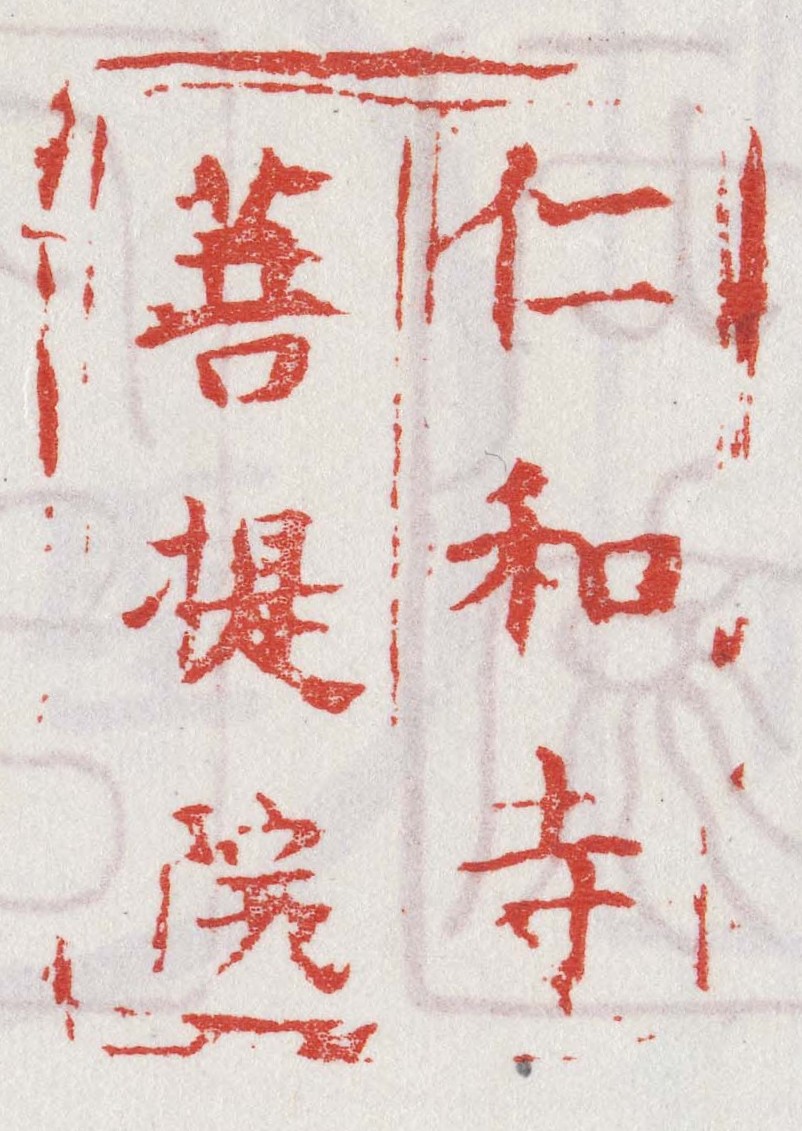 仁和寺
菩提院